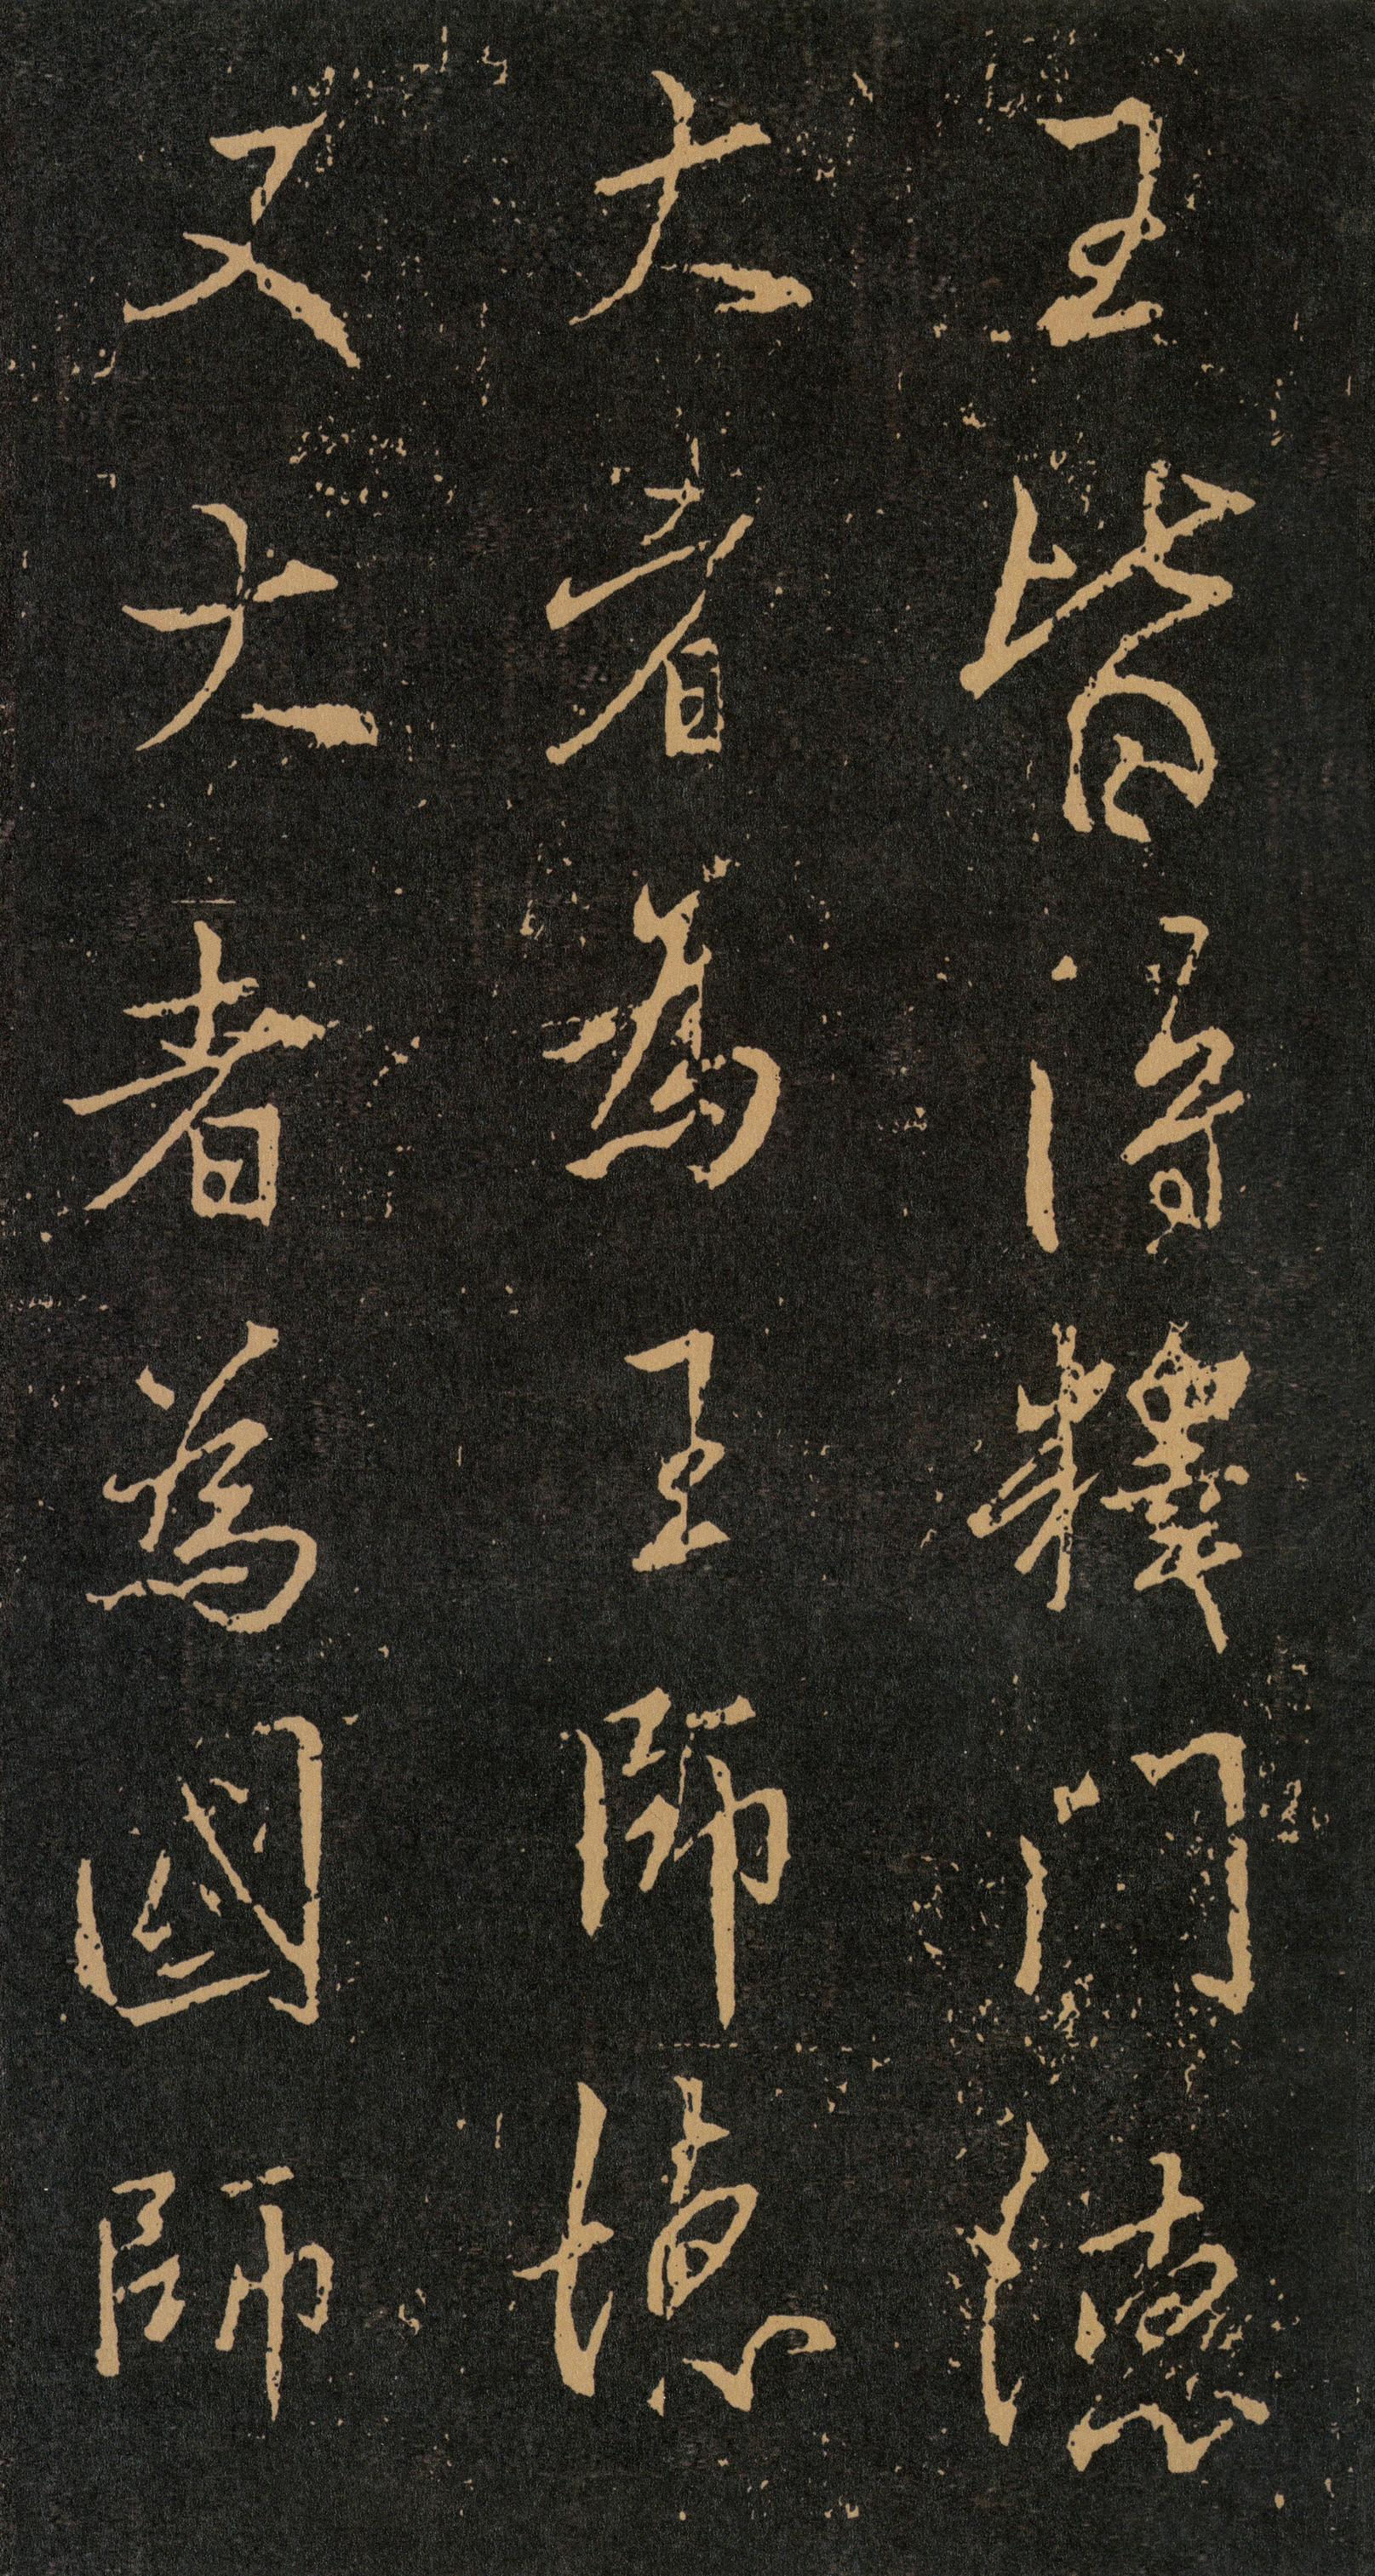 王皆得釋門德
大者為王師德
又大者為國師